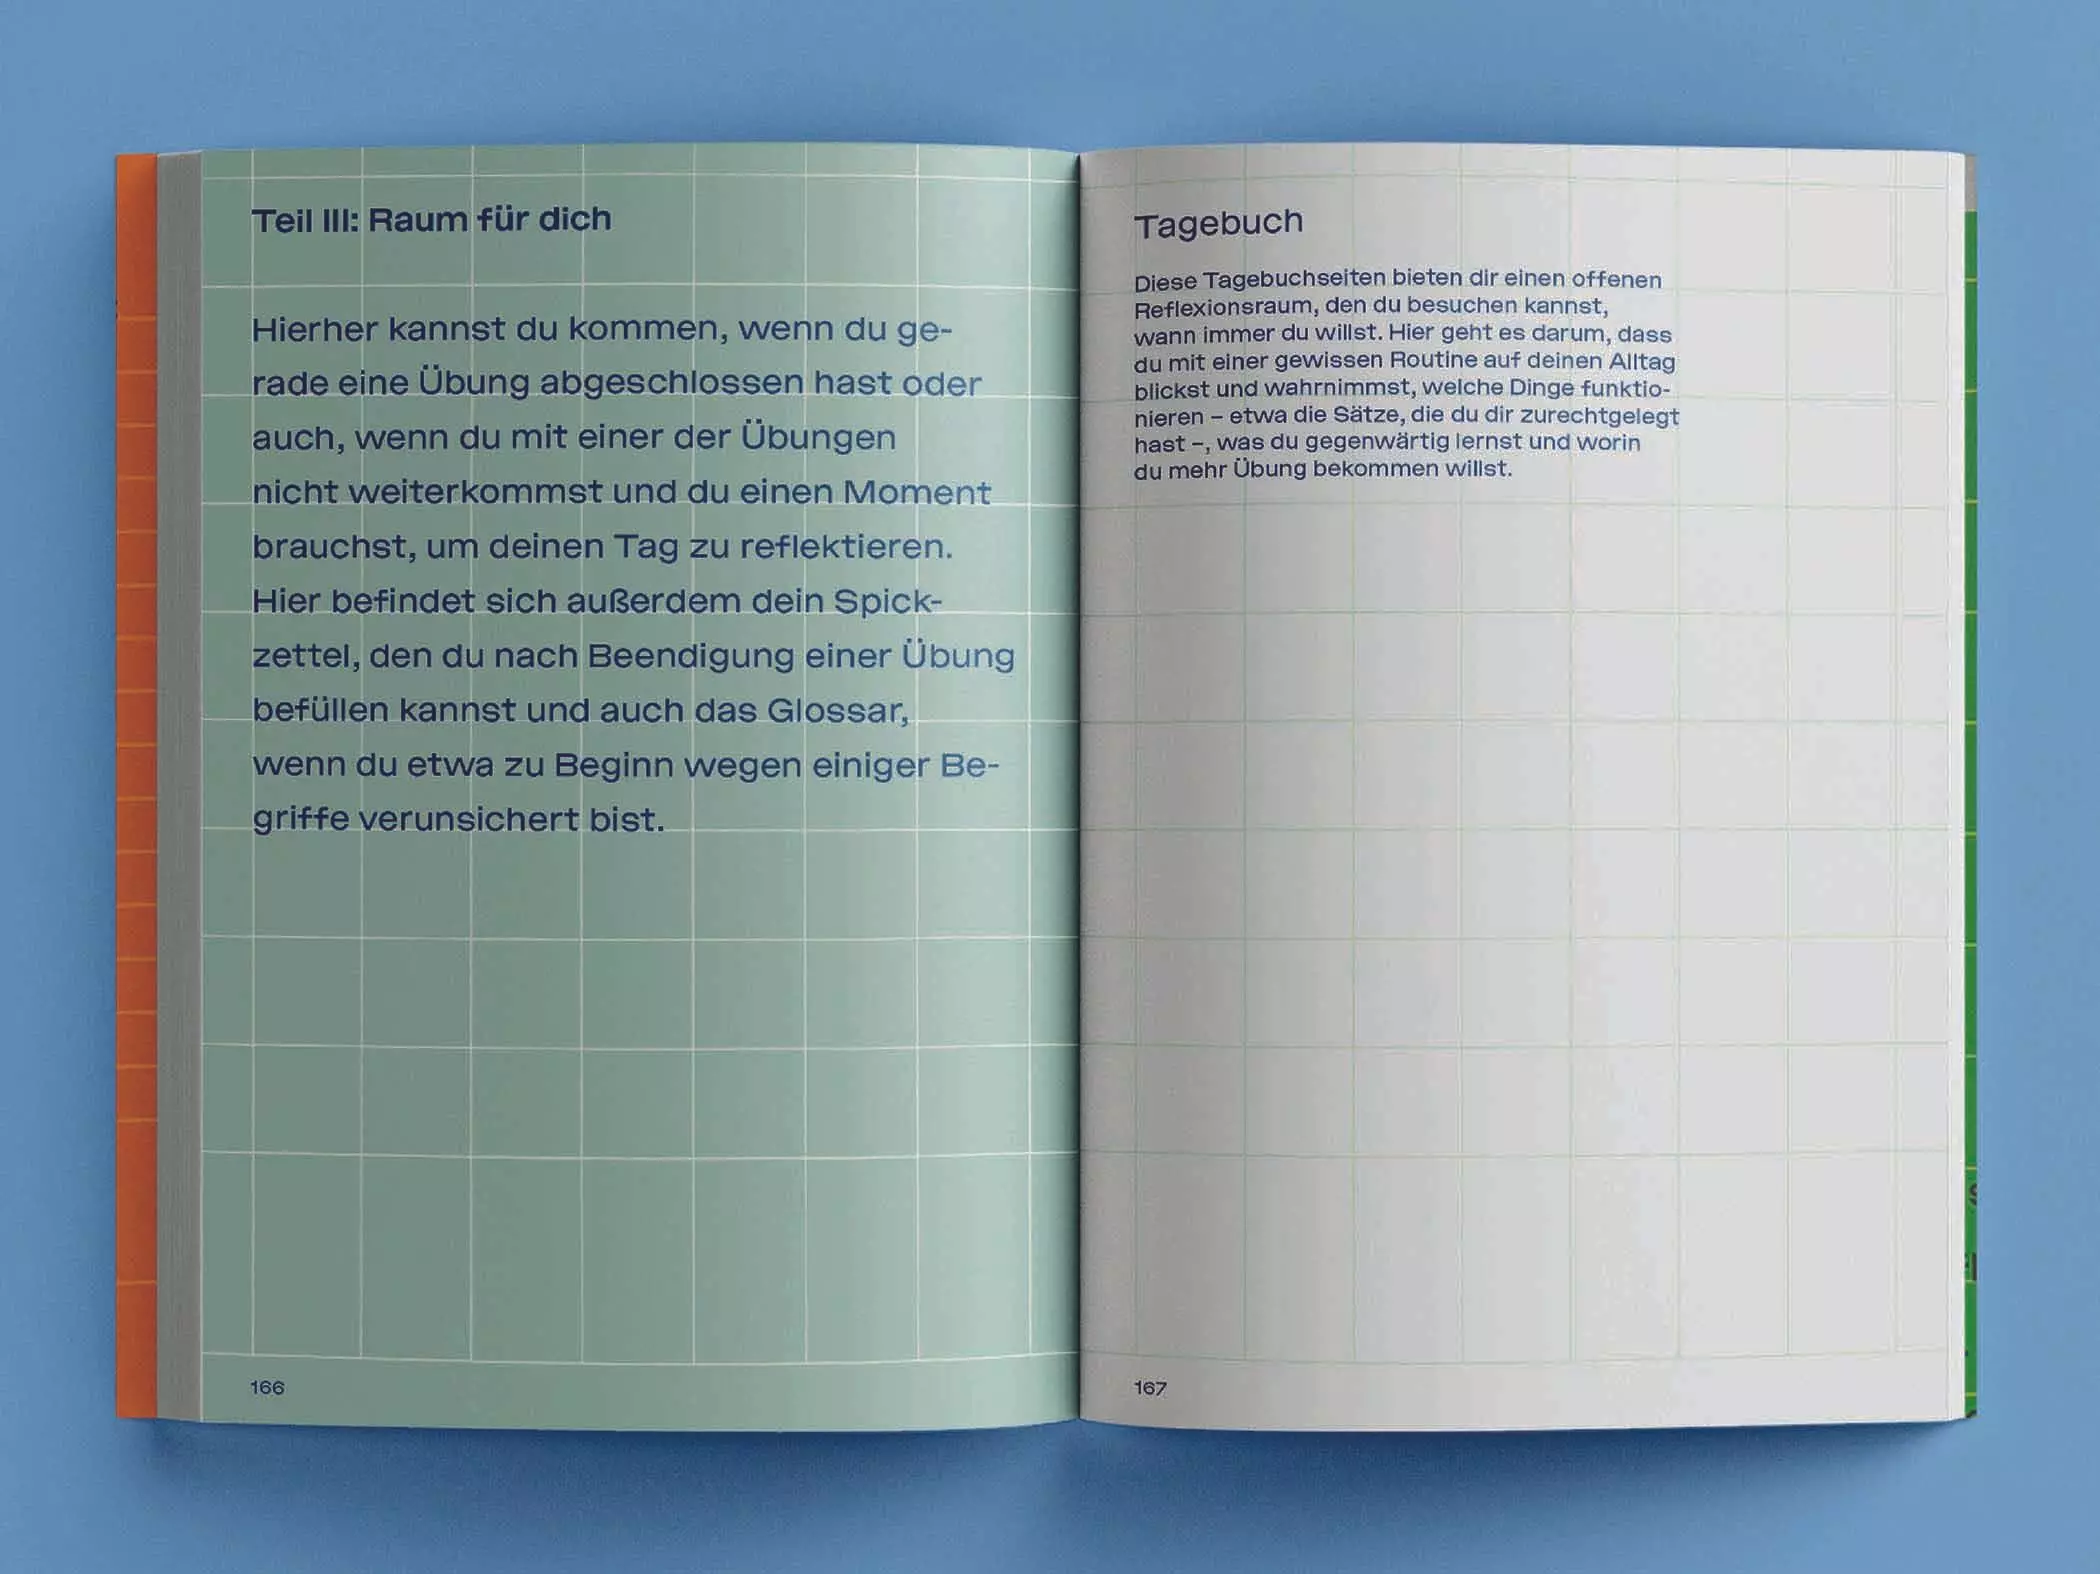 Teil III: Raum für dich
Hierher kannst du kommen, wenn du ge-
rade eine Übung abgeschlossen hast oder
auch, wenn du mit einer der Übungen
nicht weiterkommst und du einen Moment
brauchst, um deinen Tag zu reflektieren.
Hier befindet sich außerdem dein Spick-
zettel, den du nach Beendigung einer Übung
befüllen kannst und auch das Glossar,
wenn du etwa zu Beginn wegen einiger Be-
griffe verunsichert bist.
166
Tagebuch
Diese Tagebuchseiten bieten dir einen offenen
Reflexionsraum, den du besuchen kannst,
wann immer du willst. Hier geht es darum, dass
du mit einer gewissen Routine auf deinen Alltag
blickst und wahrnimmst, welche Dinge funktio-
nieren – etwa die Sätze, die du dir zurechtgelegt
hast –, was du gegenwärtig lernst und worin
du mehr Übung bekommen willst.
167